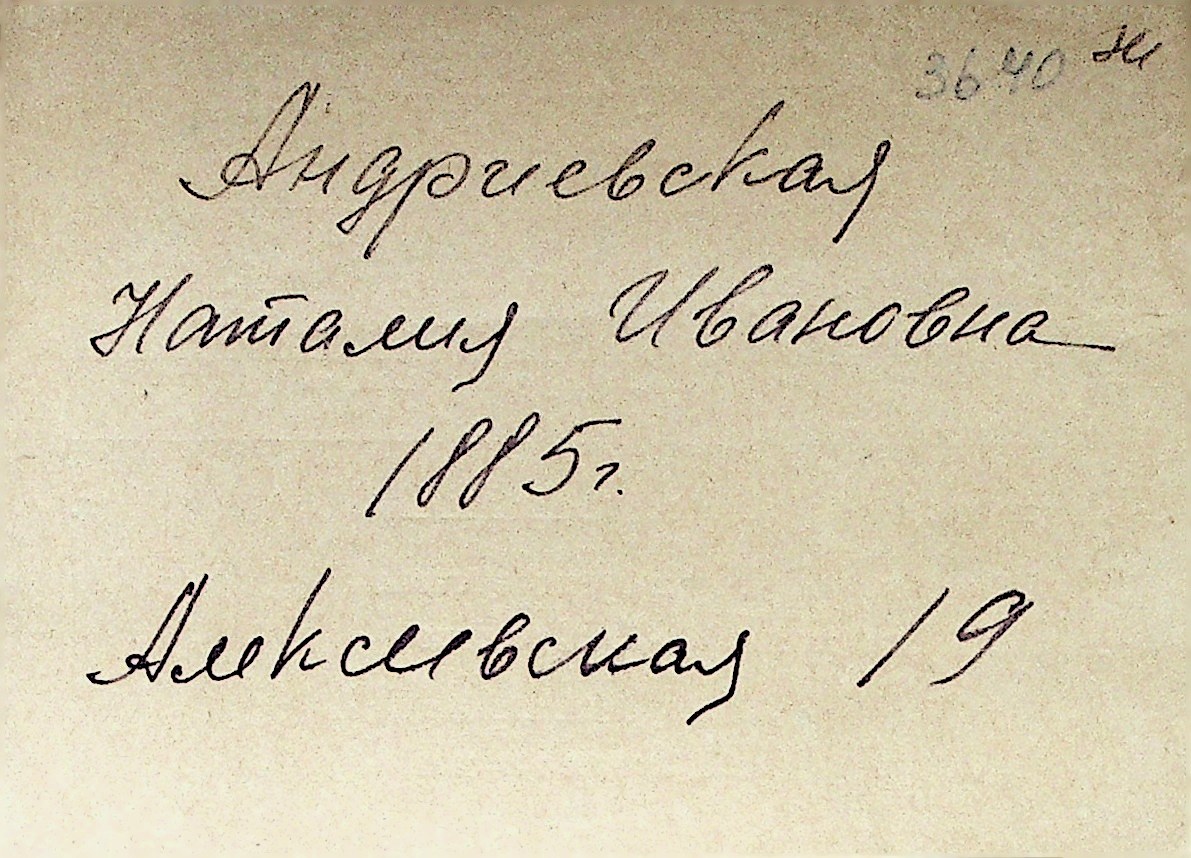 3640 н
Андриевская
Наталия Ивановна
1885г.
Алексеевская 19